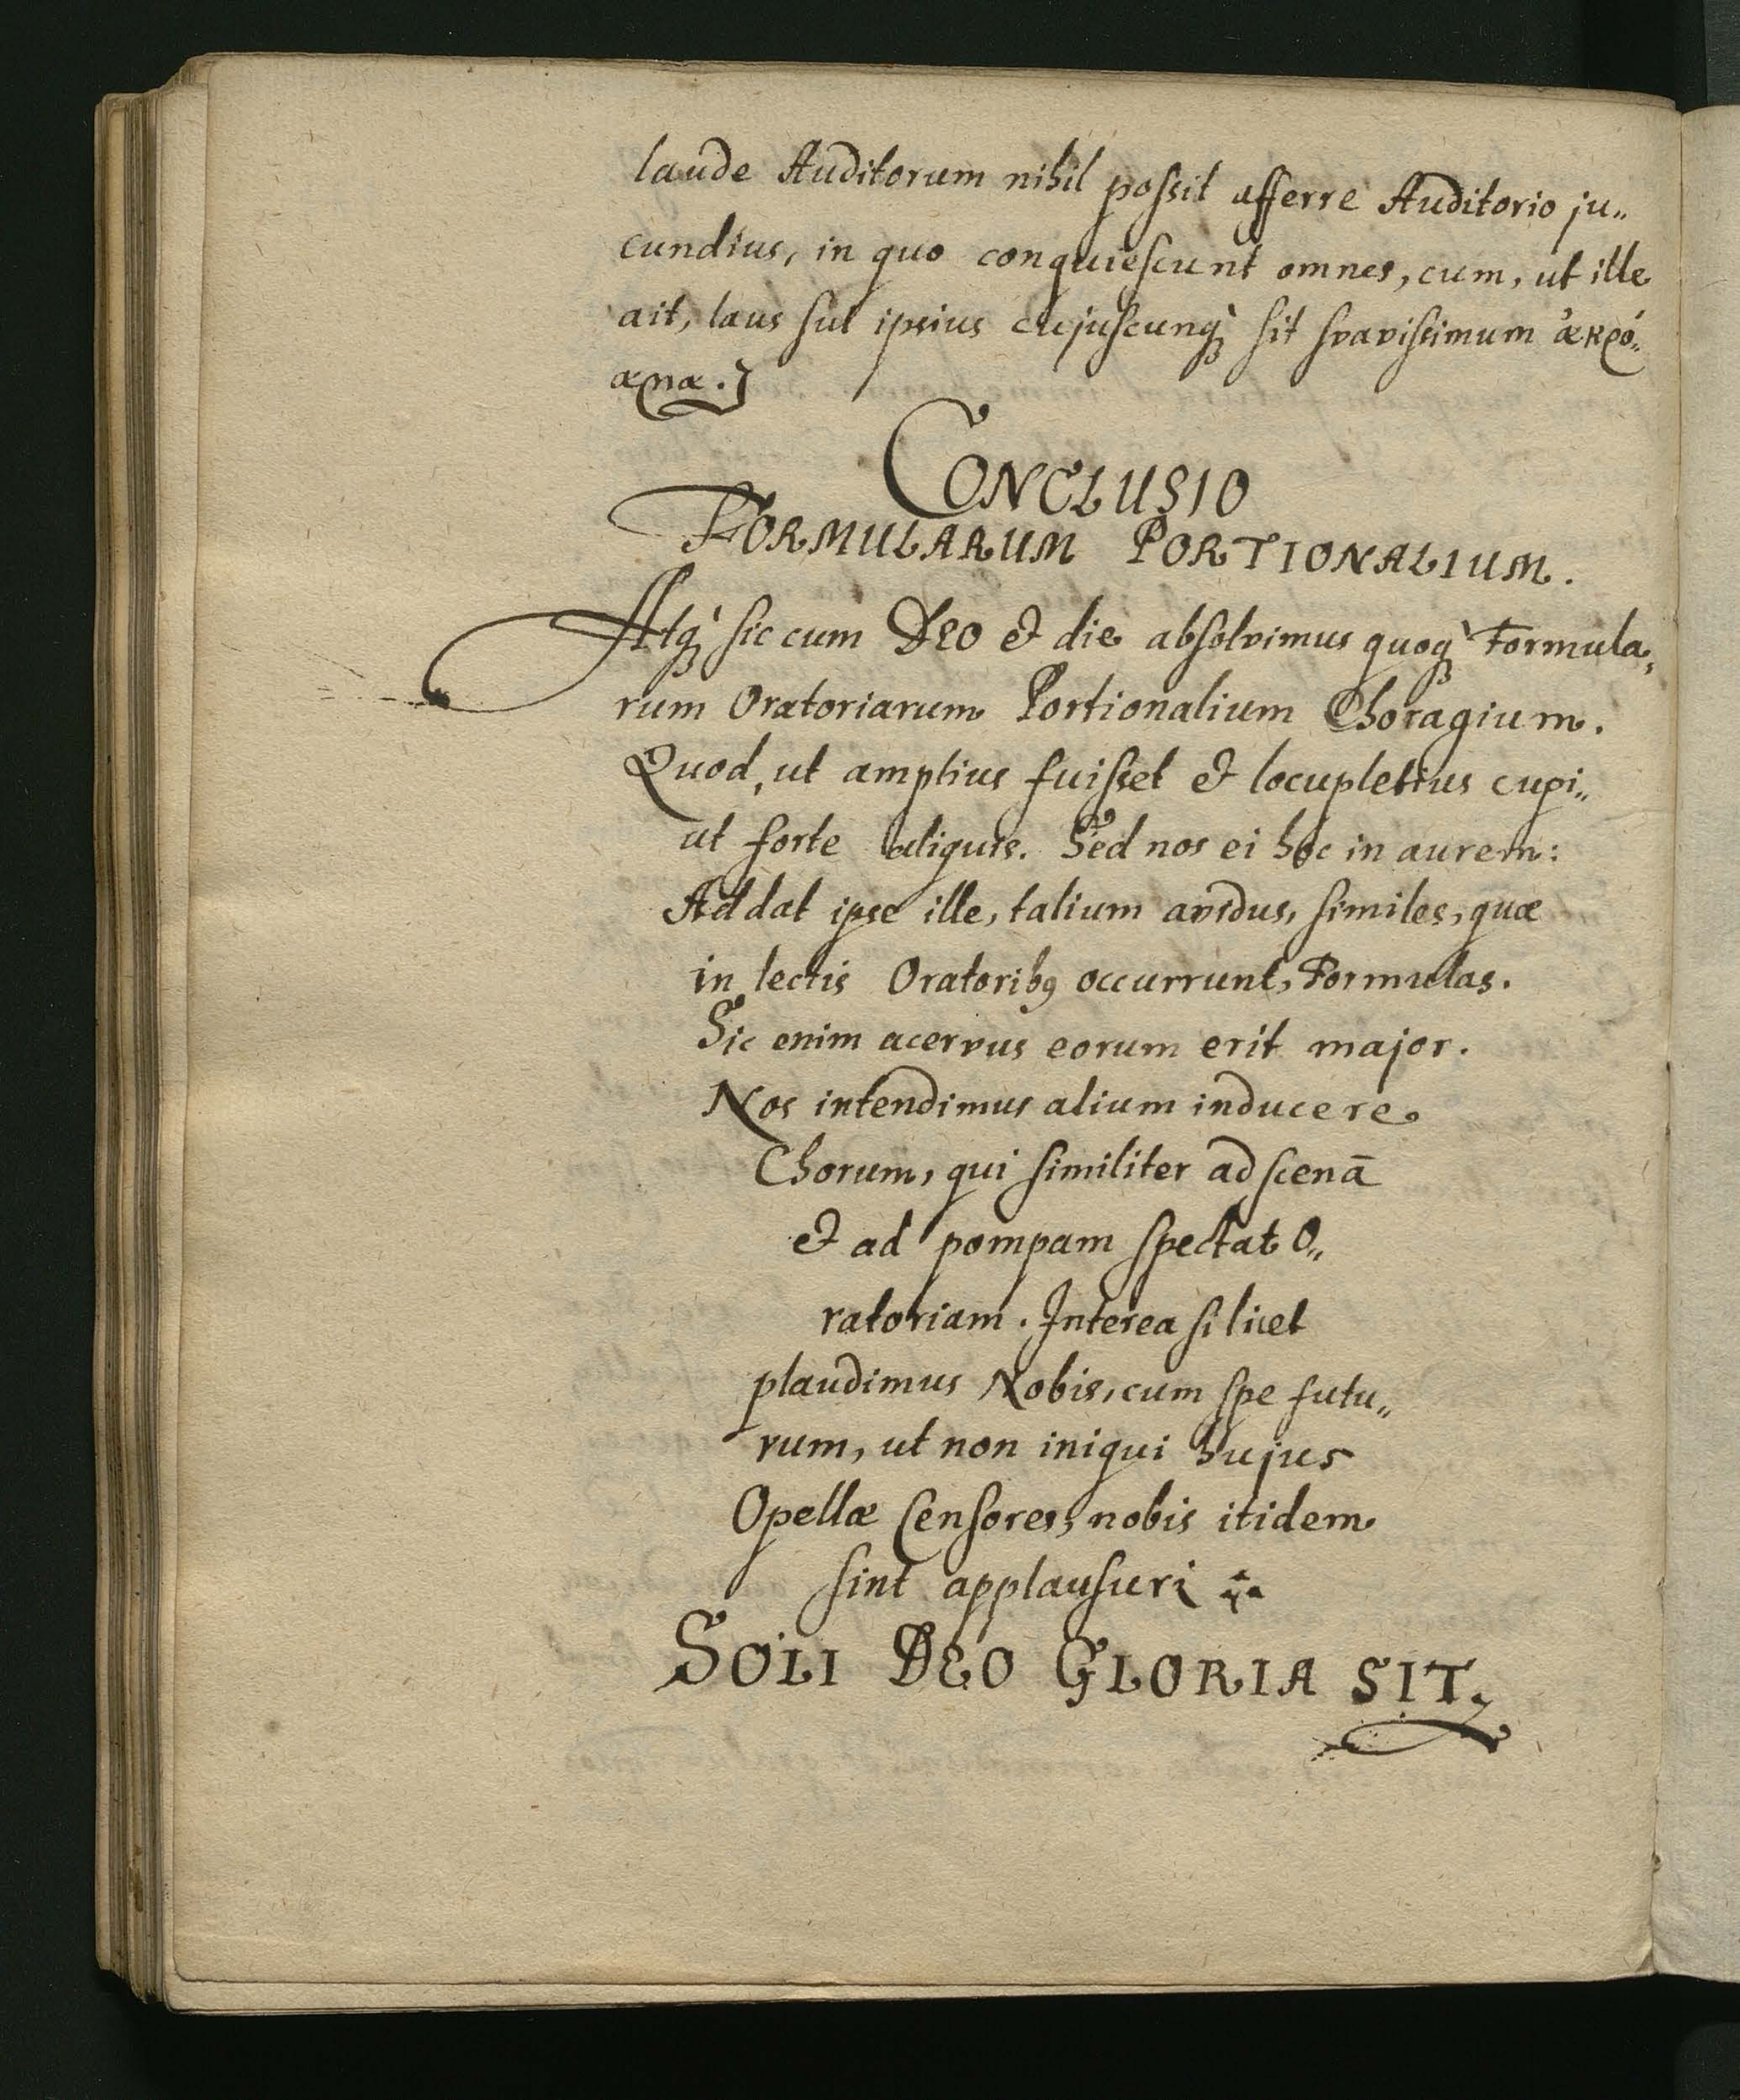 laude Auditorum nihil possit afferre Auditorio ju„
cundius, in quo conquiescunt omnes, cum, ut ille
ait, laus sui ipsius cujuscunq̀; sit svavissimum ἀκρό„
αμα.
CONCLUSIO
FORMULARUM PORTIONALIUM.
Atq̀; sic cum DEO & die absolvimus quoq̀; Formula„
rum Oratoriarum Portionalium Choragium.
Quod, ut amplius fuisset & locupletius cupi„
ut forte aliquis. Sed nos ei hoc in aurem:
Addat ipse ille, talium avidus, similes, quæ
in lectis Oratorib9 occurrunt, Formulas.
Sic enim acervus eorum erit major.
Nos intendimus alium inducere
Chorum, qui similiter ad scenā
& ad pompam spectat O„
ratoriam. Interea si licet
plaudimus Nobis, cum spe futu„
rum, ut non iniqui hujus
Opellæ Censores, nobis itidem
sint applausuri
SOLI DEO GLORIA SIT.